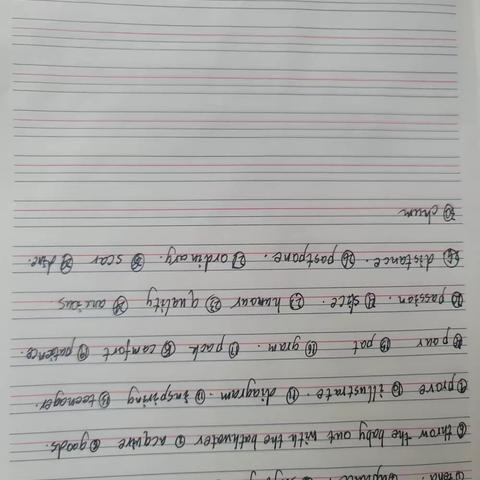 tend.
⑥ throw the baby out with the bathwater ⑦ acquire ⑧ goods.
⑨ prove ⑩ illustrate. ⑪ diagram. ⑫ inspiring ⑬ teenager.
⑭ pour ⑮ pat ⑯ gram. ⑰ pack ⑱ comfort ⑲ patience.
⑳ passion. ㉑ slice. ㉒ humour ㉓ quality ㉔ anxious
㉕ distance. ㉖ postpone. ㉗ ordinary. ㉘ scar ㉙ dine.
㉚ chum